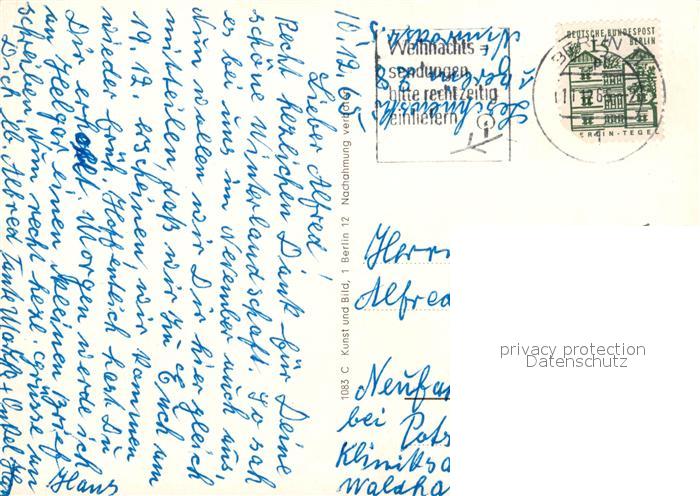 10.12.65
Lieber Alfred!
Recht herzlichen Dank für Deine
schöne Winterlandschaft. So sah
es bei uns im November auch aus,
Nun wollen wir Dir hier gleich
mitteilen, daß wir zu Euch am
19.12 erscheinen wir kommen
wieder früh. Hoffentlich hast Du
Dir erholt. Morgen werde ich
an Helga einen kleinen Brief
schreiben. Nun recht herzl. Grüsse an
Dich lb Alfred Tante Martha + Onkel Hans
1083 C Kunst und Bild, 1 Berlin 12 Nachahmung verboten
Weihnachts-
sendungen
bitte rechtzeitig
einliefern
DEUTSCHE BUNDESPOST
BERLIN
BERLIN-TEGEL
Herrn
Alfred
bei Pots
Waldha
privacy protection
Datenschutz